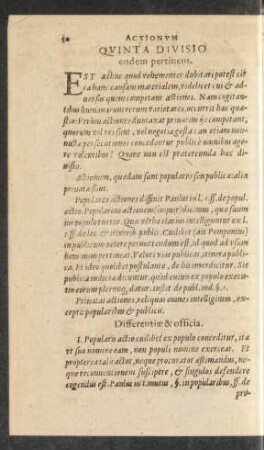 ACTIONVM
QVINTA DIVISIO
eodem pertinens.
EST adhuc quod vehementer dubitari potest cir
ca hanc causam materialem, videlicet cui & ad-
uersus quem competant actiones. Nam cogitanti-
bus humanarum rerum varietates, occurrit hac quæ-
stio: Vtrum actiones duntaxat priuatim ijs competant,
quorum vel res sunt, vel negotia gesta: an etiam non-
nullæ persecutiones concedantur publicè omnibus age-
re volentibus? Quare non est prætereunda hæc di-
uisio.
Actionum, quædam sunt populares seu publicæ: aliæ
priuatæ sunt.
Populares actiones diffinit Paulus in l. 1. ff. de popul.
actio. Popularem actionem (inquit) dicimus, quæ suum
ius populi
1. ff. de loc. & publ. Cuilibet (ait Pomponius)
in publicum petere permittendum est, id quod ad vsum
hominum pertineat. Veluti vias publicas, itinera publi-
ca. Et ideo quolibet postulante, de his interdicitur. Sic
publica iudicia dicuntur, quòd cuiuis ex populo execu-
tio eorum plerunque datur. Instit. de publ. iud. §. 1.
Priuatas actiones, reliquas omnes intelligimus, ex-
ceptis popularibus & publicis.
Differentiæ & officia.
I. Popularis actio cuilibet ex populo conceditur, ita
vt suo nomine eam, non populi nomine exerceat. Et
propterea talis actor, neque procurator æstimandus, ne-
que reconuentioni suscipere, & singulos defendere
cogendus est. Paulus in l. mutus, §. in popularibus, ff. de
pro-